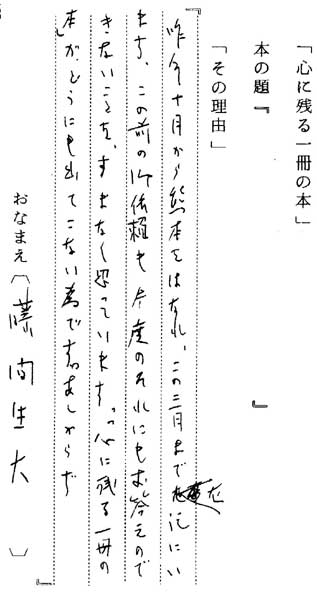 「心に残る一冊の本」
本の題『　　　』
「その理由」
『昨年十月から熊本をはなれ、この三月まで在　にい
ます、この前の御依頼も今度のそれにもお答えので
きないことを、すまなく思っています。"心に残る一冊の
本"がどうにも出てこない為です。あしからず
』
おなまえ〔藤間生大〕